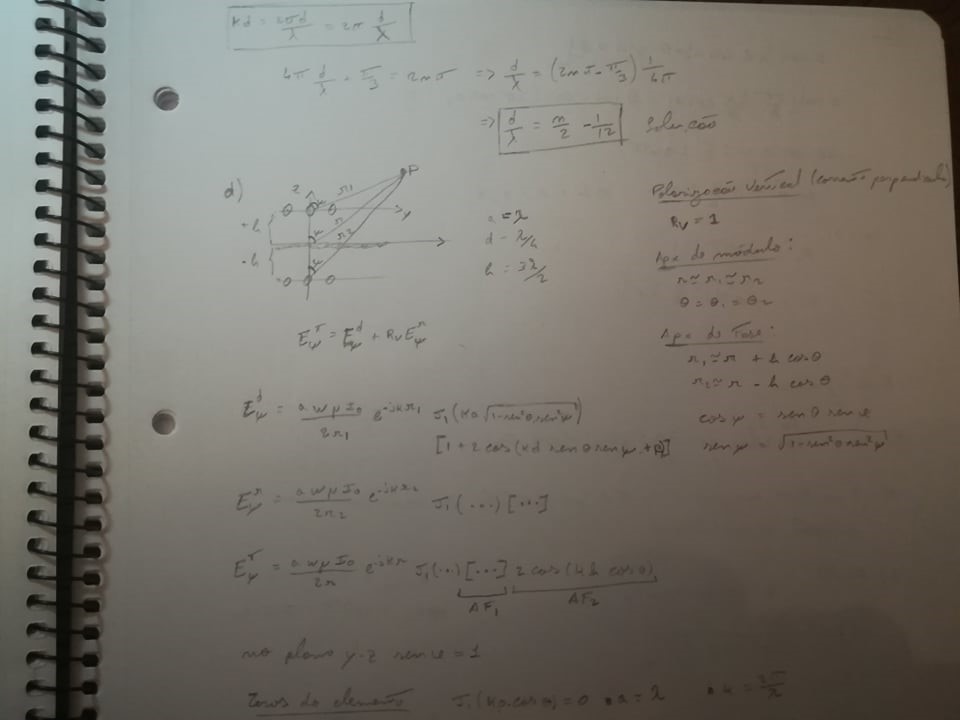 kd = 2πd/λ = 2π d/λ
4π d/λ + π/3 = 2nπ => d/λ = (2nπ - π/3) 1/4π
=> d/λ = n/2 - 1/12 Solução
d)
z r1 P
r y
r2
+h
-h
a = λ
d = λ/4
h = 3λ/2
Polarização Vertical (
Rv = 1
Apx de módulo:
r ≅ r1 ≅ r2
θ = θ1 = θ2
Apx de Fase:
r1 ≅ r + h cosθ
r2 ≅ r - h cosθ
cos ψ = senθ senφ
sen ψ = √(1-sen²θ sen²φ)
E_ψ^T = E_ψ^d + Rv E_ψ^r
E_ψ^d = a ω μ I0 / 2r1 e^-jkr1 J1(ka √(1-sen²θ sen²φ))
[1 + 2 cos(kd senθ senφ + β)]
E_ψ^r = a ω μ I0 / 2r2 e^-jkr2 J1(...) [...]
E_ψ^T = a ω μ I0 / 2r e^-jkr J1(...) [...] 2 cos(kh cosθ)
AF1 AF2
no plano y-z senφ = 1
Zeros do elemento J1(ka cosθ) = 0 • a = λ • k = 2π/λ